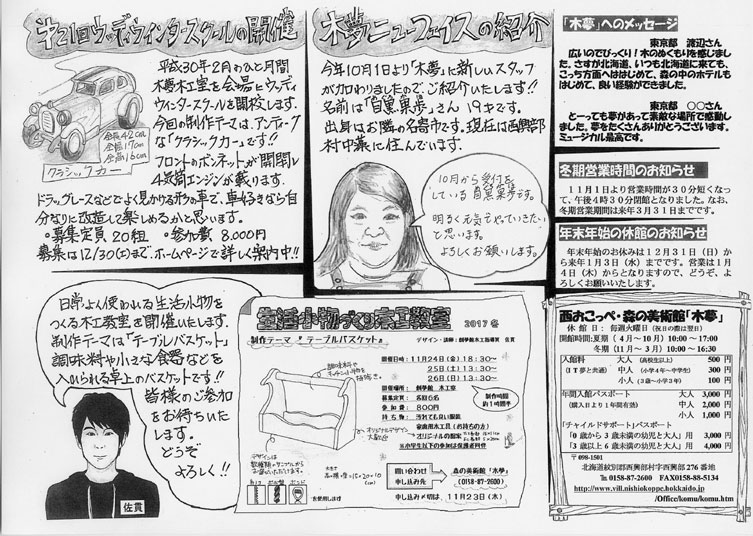 第21回ウッディウィンタースクールの開催
平成30年2月のひと月間
木夢木工室を会場にウッディ
ウィンタースクールを開校します。
今回の制作テーマは、アンティーク
な「クラシックカー」です!!
フロントのボンネットが開閉し
4気筒エンジンが載ります。
全長42cm
全幅17cm
全高16cm
クラシックカー
ドラッグレースなどでよく見かける形の車で、車好きなら自
分なりに改造して楽しめるかと思います。
・募集定員20組 ・参加費 8,000円
募集は12/30(土)まで、ホームページで詳しく案内中!!
木夢ニューフェイスの紹介
今年10月1日より「木夢」に新しいスタッフ
が加わりましたので、ご紹介いたします!!
出身はお隣の名寄市です。現在は西興部
村中藻に住んでいます。
10月から受付を
明るく元気にやっていきたい
と思います。
よろしくお願いします。
「木夢」へのメッセージ
東京都 渡辺さん
広いのでびっくり!木のぬくもりを感じまし
た。さすが北海道、いつも北海道に来ても、
こっち方面へははじめて、森の中のホテルも
はじめて、良い経験ができました。
東京都 ○○さん
とーっても夢があって素敵な場所で感動し
ました。夢をたくさんありがとうございます。
ミュージカル最高です。
冬期営業時間のお知らせ
11月1日より営業時間が30分短くなっ
て、午後4時30分閉館となりました。なお、
冬期営業期間は来年3月31日までです。
年末年始の休館のお知らせ
年末年始のお休みは12月31日(日)か
ら来年1月3日(水)までです。営業は1月
4日(木)からとなりますので、どうぞ、よ
ろしくお願いいたします。
日常よく使われる生活小物を
つくる木工教室を開催いたします。
制作テーマは「テーブルバスケット」
調味料や小さな食器などを
入れられる卓上のバスケットです!!
皆様のご参加
をお待ちいた
します。
どうぞ
よろしく!!
佐貫
生活小物づくり木工教室
2017 冬
制作テーマ
テーブルバスケット
デザイン・講師:創夢館木工指導員 佐貫
開催日時:11月24日(金)18:30~
25日(土)13:30~
26日(日)13:30~
制作時間
約1時間半
開催場所:創夢館 木工室
募集定員:各回6名
参加費:800円
持ち物:汚れても良い服装
家庭用木工具(お持ちの方)
※小学生以下の参加は保護者同伴
問い合わせ
申し込み先
森の美術館「木夢」
(0158-87-2600)
申し込み〆切は、11月23日(木)
西おこっぺ・森の美術館「木夢」
休館日:毎週火曜日(祝日の際は翌日)
開館時間:夏期(4月~10月)10:00~17:00
冬期(11月~3月)10:00~16:30
入館料 大人(高校生以上) 500円
(IT夢と共通) 中人(小学4年~中学生) 300円
小人(3歳~小学3年) 100円
年間入館パスポート 大人 3,000円
(購入日より1年間有効) 中人 2,000円
小人 1,000円
「チャイルドサポート」パスポート
「0歳から3歳未満の幼児と大人」用 3,000円
「3歳以上6歳未満の幼児と大人」用 4,000円
〒098-1501
北海道紋別郡西興部村字西興部276番地
Tel 0158-87-2600 FAX0158-88-5134
http://www.vill.nishiokoppe.hokkaido.jp
/Office/komu/komu.htm